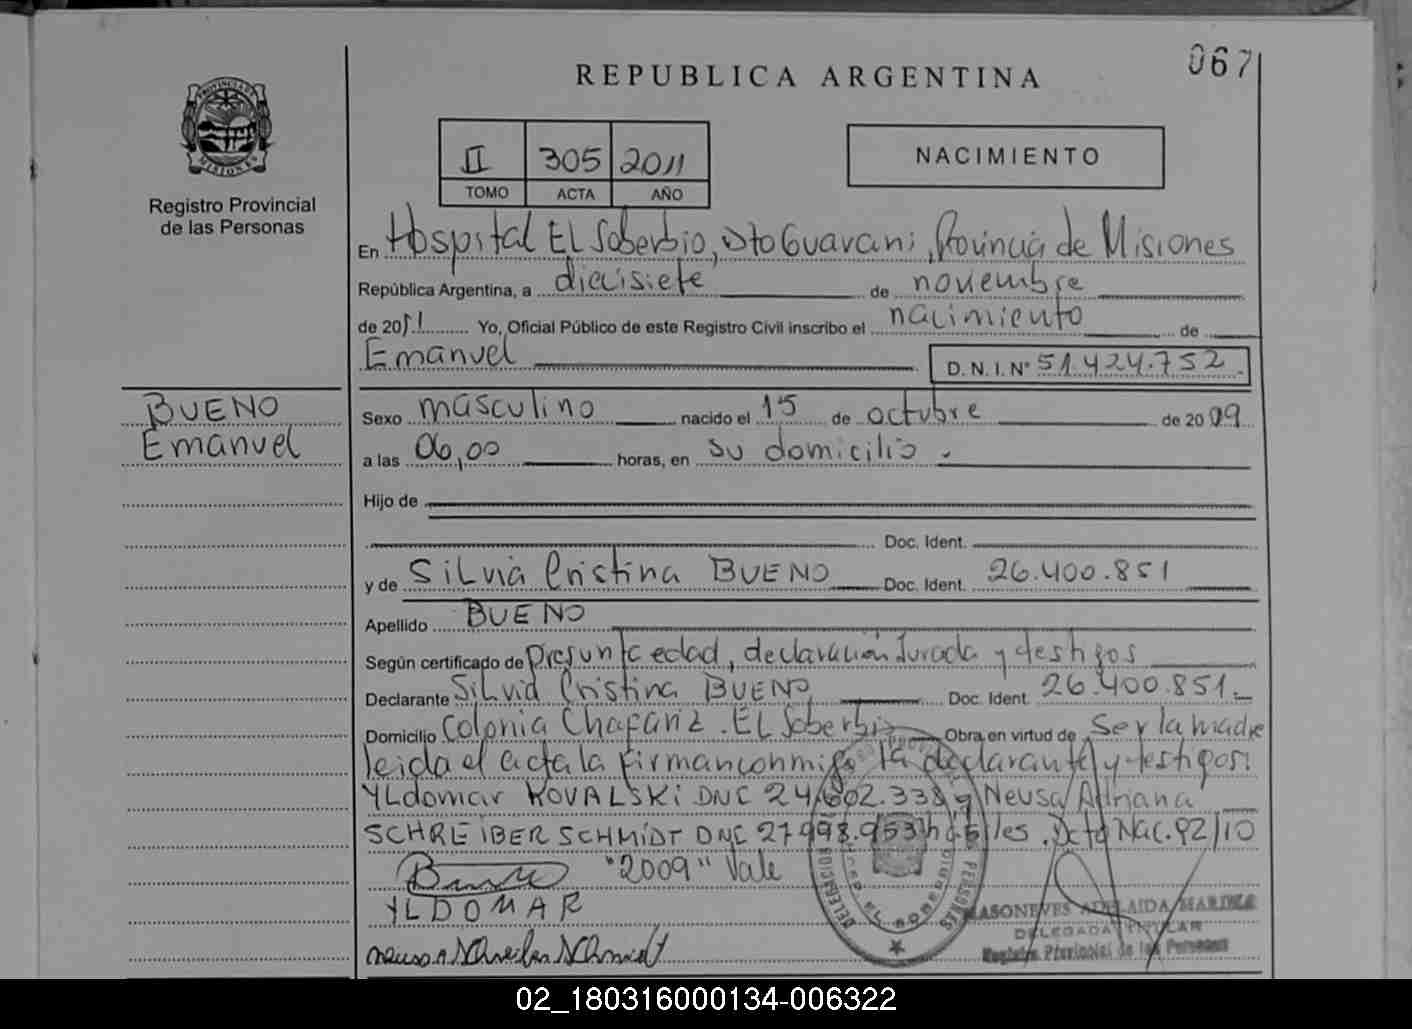 067
REPUBLICA ARGENTINA
PROVINCIA DE MISIONES
II 305 2011
TOMO ACTA AÑO
NACIMIENTO
Registro Provincial
de las Personas
En Hospital El Soberbio, Dto Guarani, Provincia de Misiones
República Argentina, a diecisiete de noviembre
de 2011 Yo, Oficial Público de este Registro Civil inscribo el nacimiento de
Emanuel D.N.I. Nº 51.424.752
BUENO
Emanuel
Sexo masculino nacido el 15 de octubre de 2009
a las 06,00 horas, en su domicilio.
Hijo de
Doc. Ident.
y de Silvia Cristina BUENO Doc. Ident. 26.400.851
Apellido BUENO
Según certificado de presunta edad, declaración Jurada y testigos
Declarante Silvia Cristina BUENO Doc. Ident. 26.400.851.-
Domicilio Colonia Chafariz. El Soberbio Obra en virtud de Ser la madre
leida el acta la firman conmigo la declarante y testigos:
YLdomar KOVALSKi DNC 24.602.338 y Neusa Adriana
SCHREiBER SCHMiDT DNC 27.998.953 habiles. Dcto Nac. 92/10
"2009" Vale
YLDOMAR
MASONEVES ADELAIDA MARINA
DELEGADA TITULAR
Registro Provincial de las Personas
DELEGACION EL SOBERBIO
02_180316000134-006322